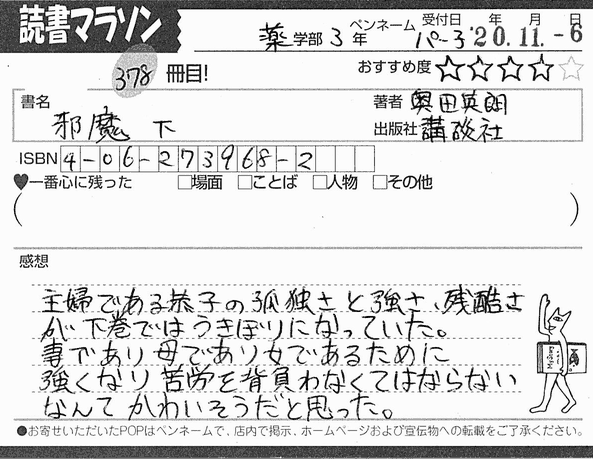 読書マラソン
薬学部 3年 ペンネーム パー子 受付日 '20.11.-6 年 月 日
378 冊目!
おすすめ度 ☆☆☆☆☆
書名 邪魔 下
著者 奥田英朗
出版社 講談社
ISBN 4-06-273968-2
♥一番心に残った □場面 □ことば □人物 □その他
( )
感想
主婦である恭子の孤独さと強さ、残酷さ
が下巻ではうきぼりになっていた。
妻であり母であり女であるために
強くなり苦労を背負わなくてはならない
なんてかわいそうだと思った。
●お寄せいただいたPOPはペンネームで、店内で掲示、ホームページおよび宣伝物への転載をご了承ください。